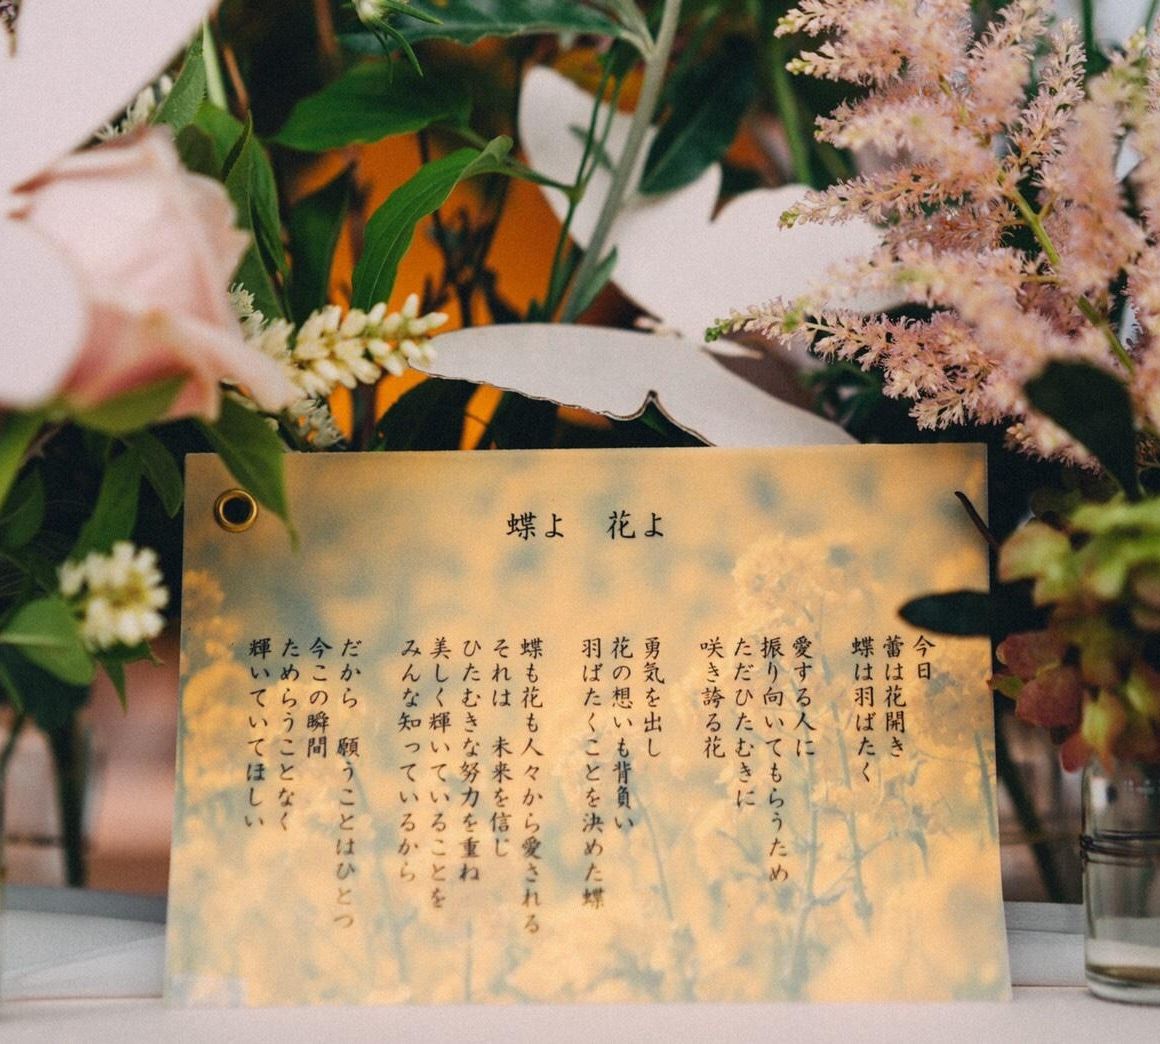 蝶よ　花よ
今日
蕾は花開き
蝶は羽ばたく
愛する人に
振り向いてもらうため
ただひたむきに
咲き誇る花
勇気を出し
花の想いも背負い
羽ばたくことを決めた蝶
蝶も花も人々から愛される
それは　未来を信じ
ひたむきな努力を重ね
美しく輝いていることを
みんな知っているから
だから　願うことはひとつ
今この瞬間
ためらうことなく
輝いていてほしい